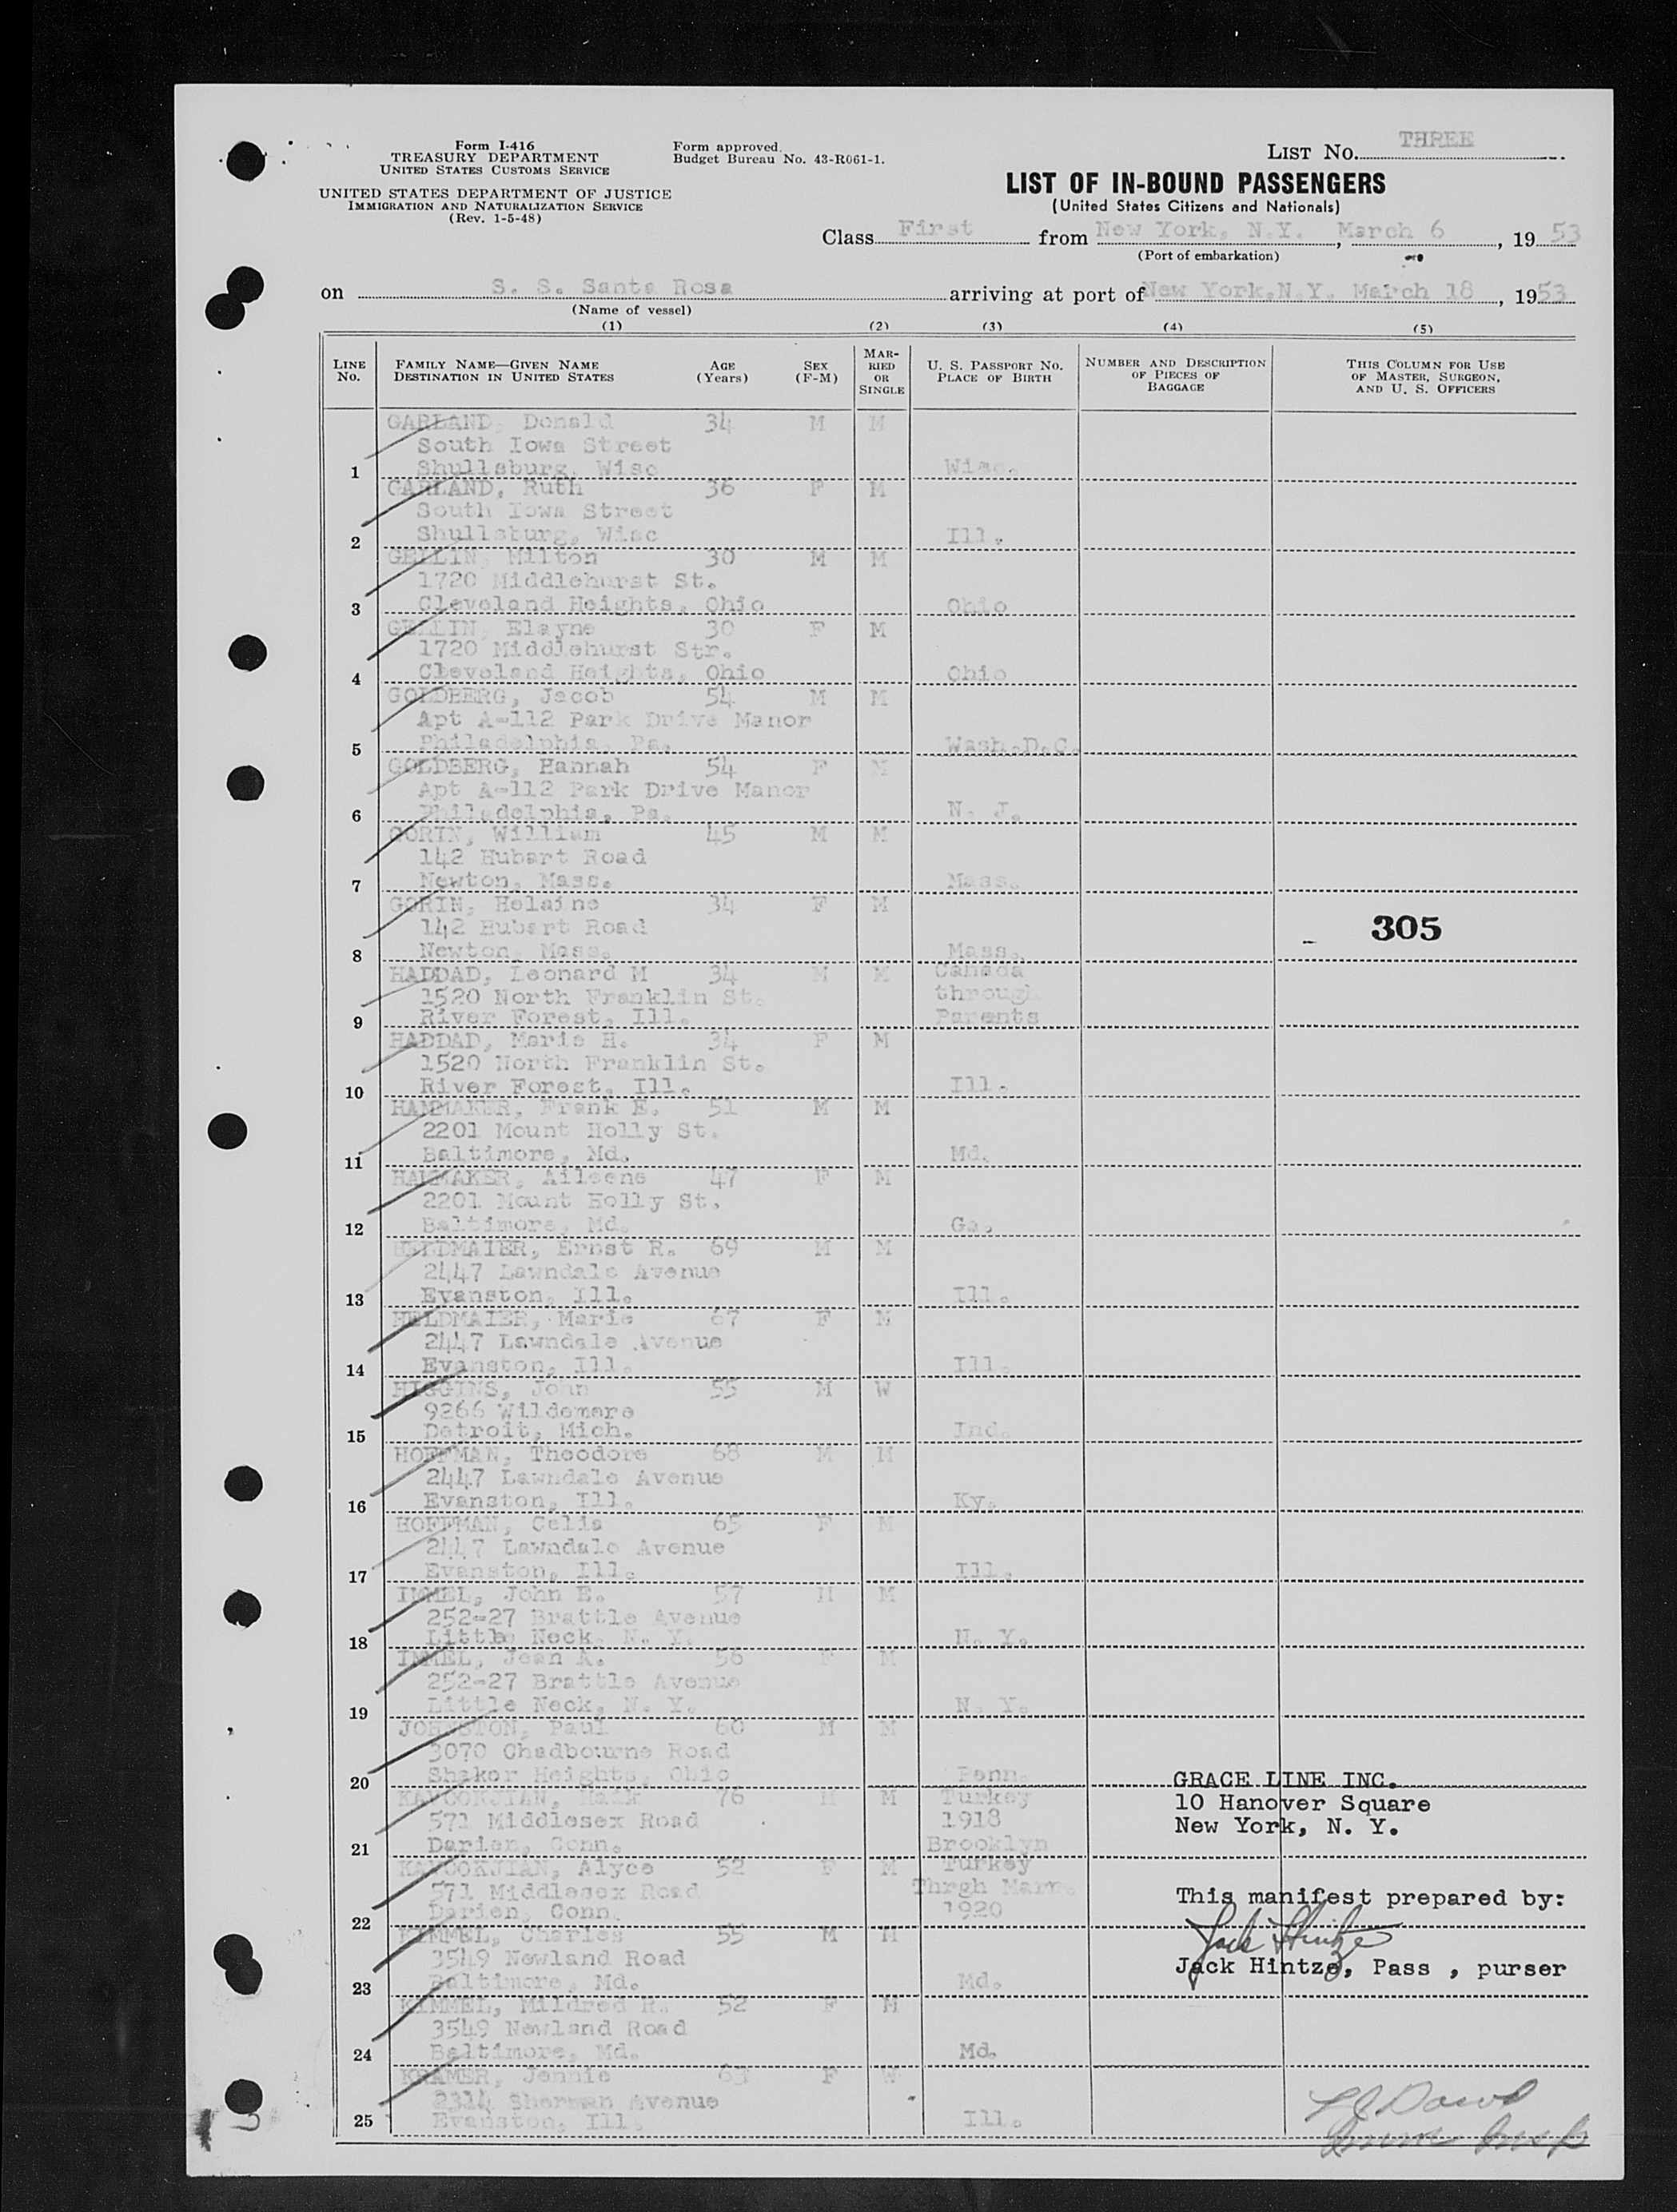 Form I-416
TREASURY DEPARTMENT
UNITED STATES CUSTOMS SERVICE
UNITED STATES DEPARTMENT OF JUSTICE
IMMIGRATION AND NATURALIZATION SERVICE
(Rev. 1-5-48)
Form approved.
Budget Bureau No. 43-R061-1.
LIST No. THREE
LIST OF IN-BOUND PASSENGERS
(United States Citizens and Nationals)
Class First from New York, N.Y., March 6, 1953
(Port of embarkation)
on S. S. Santa Rosa arriving at port of New York,N.Y. March 18, 1953
(Name of vessel)
(1) (2) (3) (4) (5)
LINE No. FAMILY NAME—GIVEN NAME DESTINATION IN UNITED STATES AGE (Years) SEX (F-M) MARRIED OR SINGLE U. S. PASSPORT NO. PLACE OF BIRTH NUMBER AND DESCRIPTION OF PIECES OF BAGGAGE THIS COLUMN FOR USE OF MASTER, SURGEON, AND U. S. OFFICERS
GARLAND, Donald 34 M M
South Iowa Street
1 Shullsburg, Wisc Wisc.
GARLAND, Ruth 36 F M
South Iowa Street
2 Shullsburg, Wisc Ill.
GELLIN, Milton 30 M M
1720 Middlehurst St.
3 Cleveland Heights, Ohio Ohio
GELLIN, Elayne 30 F M
1720 Middlehurst Str.
4 Cleveland Heights, Ohio Ohio
GOLDBERG, Jacob 54 M M
Apt A-112 Park Drive Manor
5 Philadelphia, Pa. Wash.D.C.
GOLDBERG, Hannah 54 F M
Apt A-112 Park Drive Manor
6 Philadelphia, Pa. N. J.
GORIN, William 45 M M
142 Hubart Road
7 Newton, Mass. Mass.
GORIN, Helaine 34 F M
142 Hubart Road
305
8 Newton, Mass. Mass.
HADDAD, Leonard M 34 M M Canada
1520 North Franklin St. through
9 River Forest, Ill. Parents
HADDAD, Marie H. 34 F M
1520 North Franklin St.
10 River Forest, Ill. Ill.
HAMMAKER, Frank E. 51 M M
2201 Mount Holly St.
11 Baltimore, Md. Md.
HAMMAKER, Aileene 47 F M
2201 Mount Holly St.
12 Baltimore, Md. Ga.
HELDMAIER, Ernst R. 69 M M
2447 Lawndale Avenue
13 Evanston, Ill. Ill.
HELDMAIER, Marie 67 F M
2447 Lawndale Avenue
14 Evanston, Ill. Ill.
HIGGINS, John 55 M W
9266 Wildemere
15 Detroit, Mich. Ind.
HOFFMAN, Theodore 68 M M
2447 Lawndale Avenue
16 Evanston, Ill. Ky.
HOFFMAN, Celia 65 F M
2447 Lawndale Avenue
17 Evanston, Ill. Ill.
IMMEL, John E. 57 M M
252-27 Brattle Avenue
18 Little Neck, N. Y. N. Y.
IMMEL, Jean K. 56 F M
252-27 Brattle Avenue
19 Little Neck, N. Y. N. Y.
JOHNSTON, Paul 60 M M
3070 Chadbourne Road
20 Shaker Heights, Ohio Penn.
GRACE LINE INC.
KAVOOKJIAN, Haik 76 M M Turkey
10 Hanover Square
571 Middlesex Road 1918
New York, N. Y.
21 Darien, Conn. Brooklyn
KAVOOKJIAN, Alyce 52 F M Turkey
571 Middlesex Road Thrgh Marr.
This manifest prepared by:
22 Darien, Conn. 1920
KIMMEL, Charles 55 M M
Jack Hintze
3549 Newland Road
Jack Hintze, Pass , purser
23 Baltimore, Md. Md.
KIMMEL, Mildred R. 52 F M
3549 Newland Road
24 Baltimore, Md. Md.
KRAMER, Jennie 63 F W
2314 Sherman Avenue
25 Evanston, Ill. Ill.
3